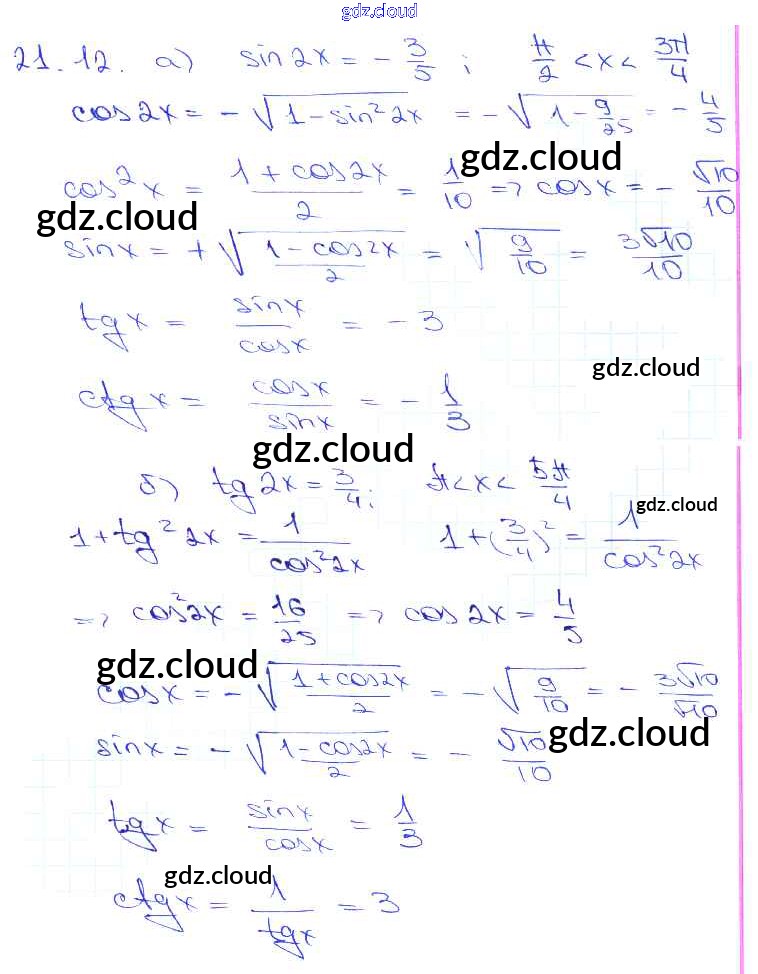 gdz.cloud
21.12. а) sin2x = - 3/5 ; π/2 < x < 3π/4
cos2x = - √(1 - sin²2x) = - √(1 - 9/25) = - 4/5
gdz.cloud
cos²x = (1 + cos2x)/2 = 1/10 => cosx = - √10/10
gdz.cloud
sinx = + √((1 - cos2x)/2) = √(9/10) = 3√10/10
tgx = sinx/cosx = - 3
gdz.cloud
ctgx = cosx/sinx = - 1/3
gdz.cloud
б) tg2x = 3/4; π < x < 5π/4
gdz.cloud
1 + tg²2x = 1/cos²2x 1 + (3/4)² = 1/cos²2x
=> cos²2x = 16/25 => cos2x = 4/5
gdz.cloud
cosx = - √((1 + cos2x)/2) = - √(9/10) = - 3√10/√10
gdz.cloud
sinx = - √((1 - cos2x)/2) = - √10/10
tgx = sinx/cosx = 1/3
gdz.cloud
ctgx = 1/tgx = 3